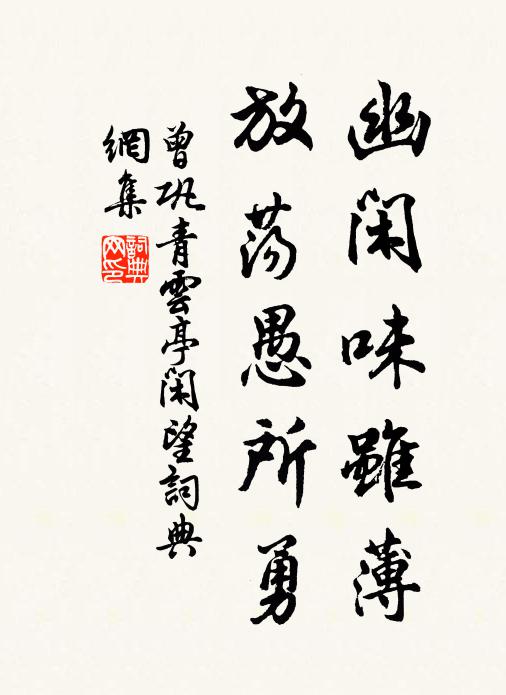 幽閑味雖薄
放蕩愚所勇
曾巩青雲亭閑望詞典
網集
詞典
网印